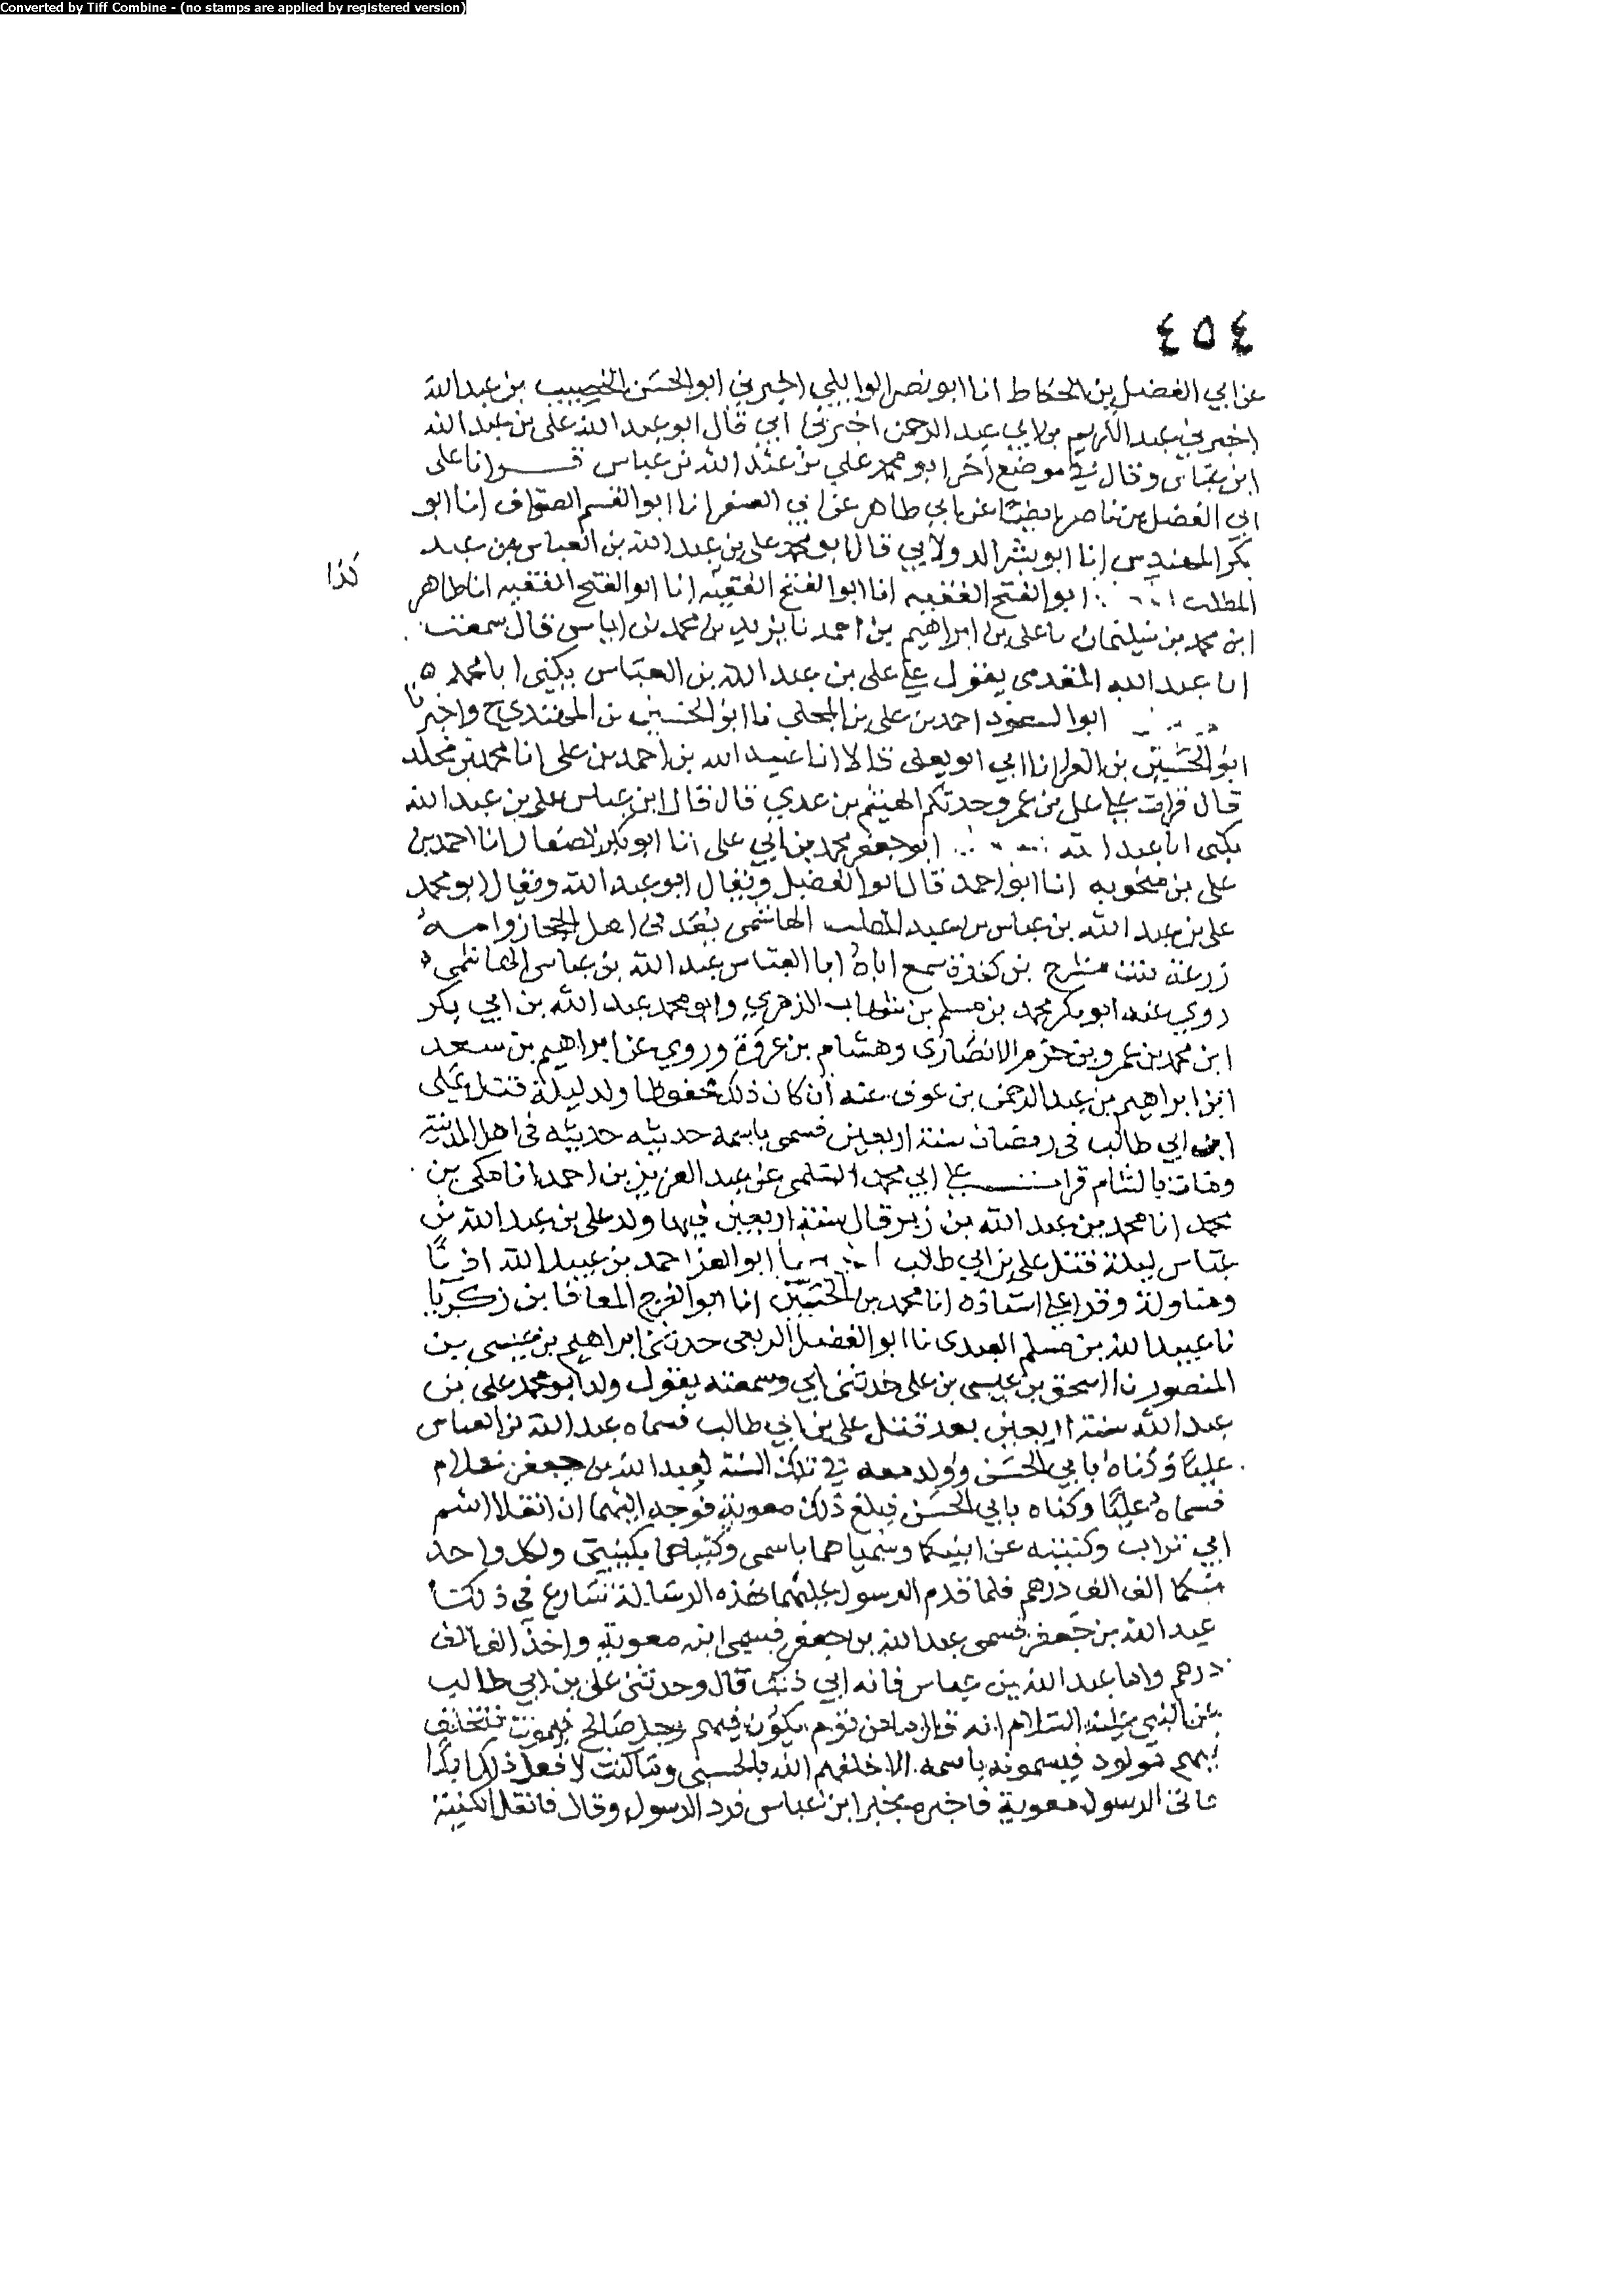 Converted by Tiff Combine - (no stamps are applied by registered version)
٤٥٤
عن ابي الفضل بن الحكاك انا ابو نصر الوايلي اخبرني ابو الحسن الخصيب بن عبد الله
اخبرني عبد الكريم بن ابي عبد الرحمن اخبرني ابي قال ابو عبد الله علي بن عبد الله
ابن عباس وقال في موضع اخر ابو محمد علي بن عبد الله بن عباس قرانا على
ابي الفضل بن ناصر ايضا عن ابي طاهر عن ابي الصقر انا ابو القسم الصواف انا ابو
بكر المهندس انا ابو بشر الدولابي قال ابو محمد علي بن عبد الله بن العباس بن عبد
المطلب ابو الفتح الفقيه انا ابو الفتح الفقيه انا ابو الفتح الفقيه انا طاهر
كذا
ابن محمد بن سليمان نا علي بن ابراهيم بن احمد نا يزيد بن محمد بن اياس قال سمعت
ابا عبد الله المقدمي يقول علي بن عبد الله بن العباس يكنى ابا محمد ه
ابو السعود احمد بن علي بن المجلي نا ابو الحسين بن المهتدي ح واخبرنا
ابو الحسين بن الفرا انا ابي ابو يعلى قالا انا عبيد الله بن احمد بن علي انا محمد بن مخلد
قال قرات على علي بن عمرو حدثكم الهيثم بن عدي قال قال ابن عباس علي بن عبد الله
يكنى ابا عبد الله ابو جعفر محمد بن ابي علي انا ابو بكر الصفار انا احمد بن
علي بن منجويه انا ابو احمد قال ابو الفضل ويقال ابو عبد الله ويقال ابو محمد
علي بن عبد الله بن عباس بن عبد المطلب الهاشمي يعد في اهل الحجاز وامه
زرعة بنت مشرح بن كندة سمع اباه ابا العباس عبد الله بن عباس الهاشمي
روى عنه ابو بكر محمد بن مسلم بن شهاب الزهري وابو محمد عبد الله بن ابي بكر
ابن محمد بن عمرو بن حزم الانصاري وهشام بن عروة وروي عن ابراهيم بن سعد
ابن ابراهيم بن عبد الرحمن بن عوف عنه ان كان ذلك محفوظا ولد ليلة قتل علي
ابن ابي طالب في رمضان سنة اربعين فسمي باسمه حديثه حديثه في اهل المدينة
ومات بالشام قرات على ابي محمد السلمي عن عبد العزيز بن احمد انا مكي بن
محمد انا محمد بن عبد الله بن زبر قال سنة اربعين فيها ولد علي بن عبد الله بن
عباس ليلة قتل علي بن ابي طالب ابو العز احمد بن عبيد الله اذنا
ومناولة وقرا علي اسناده انا محمد بن الحسين انا ابو الفرج المعافا بن زكريا
نا عبيد الله بن مسلم العبدي نا ابو الفضل الربعي حدثني ابراهيم بن عيسى بن
المنصور نا اسحق بن عيسى بن علي حدثني ابي وسمعته يقول ولد ابو محمد علي بن
عبد الله سنة اربعين بعد قتل علي بن ابي طالب فسماه عبد الله بن العباس
عليا وكناه بابي الحسن وولد معه في تلك السنة لعبد الله بن جعفر غلام
فسماه عليا وكناه بابي الحسن فبلغ ذلك معوية فوجه اليهما ان انقلا اسم
ابي تراب وكنيته عن ابنيكما وسمياهما باسمي وكنياهما بكنيتي ولكل واحد
منكما الف الف درهم فلما قدم الرسول عليهما بهذه الرسالة تسارع في ذلك
عبد الله بن جعفر فسمى عبد الله بن جعفر فسمى ابنه معوية واخذ الف الف
درهم واما عبد الله بن عباس فانه ابى ذلك قال وحدثني علي بن ابي طالب
عن النبي عليه السلام انه قال ما من قوم يكون فيهم رجل صالح فيموت فتخلف
فيهم مولود فيسمونه باسمه الا خلفهم الله بالحسنى وما كنت لافعل ذلك ابدا
فاتى الرسول معوية فاخبره بخبر ابن عباس فرد الرسول وقال فانقل الكنية